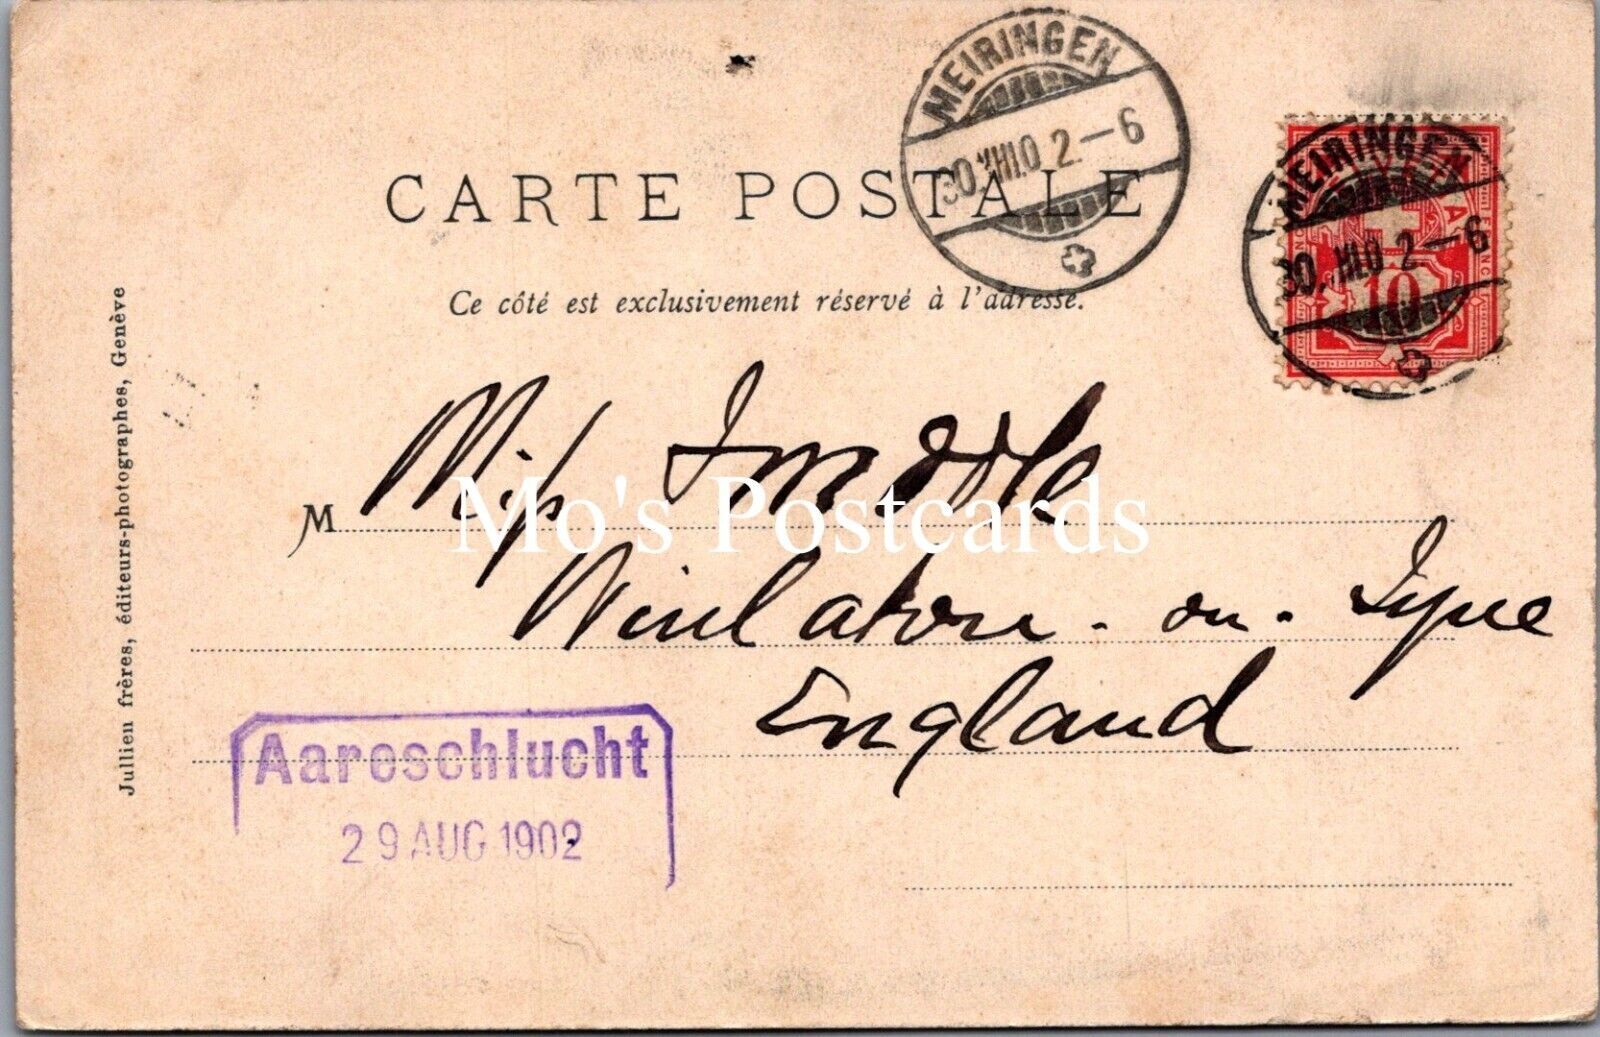 MEIRINGEN
30.VIII.02.-6
MEIRINGEN
30.VIII.02.-6
10
CARTE POSTALE
Ce côté est exclusivement réservé à l'adresse.
Jullien frères, éditeurs-photographes, Genève
M Miss Smiddle
Mo's Postcards
Winlaton-on-Tyne
England
Aareschlucht
29 AUG 1902